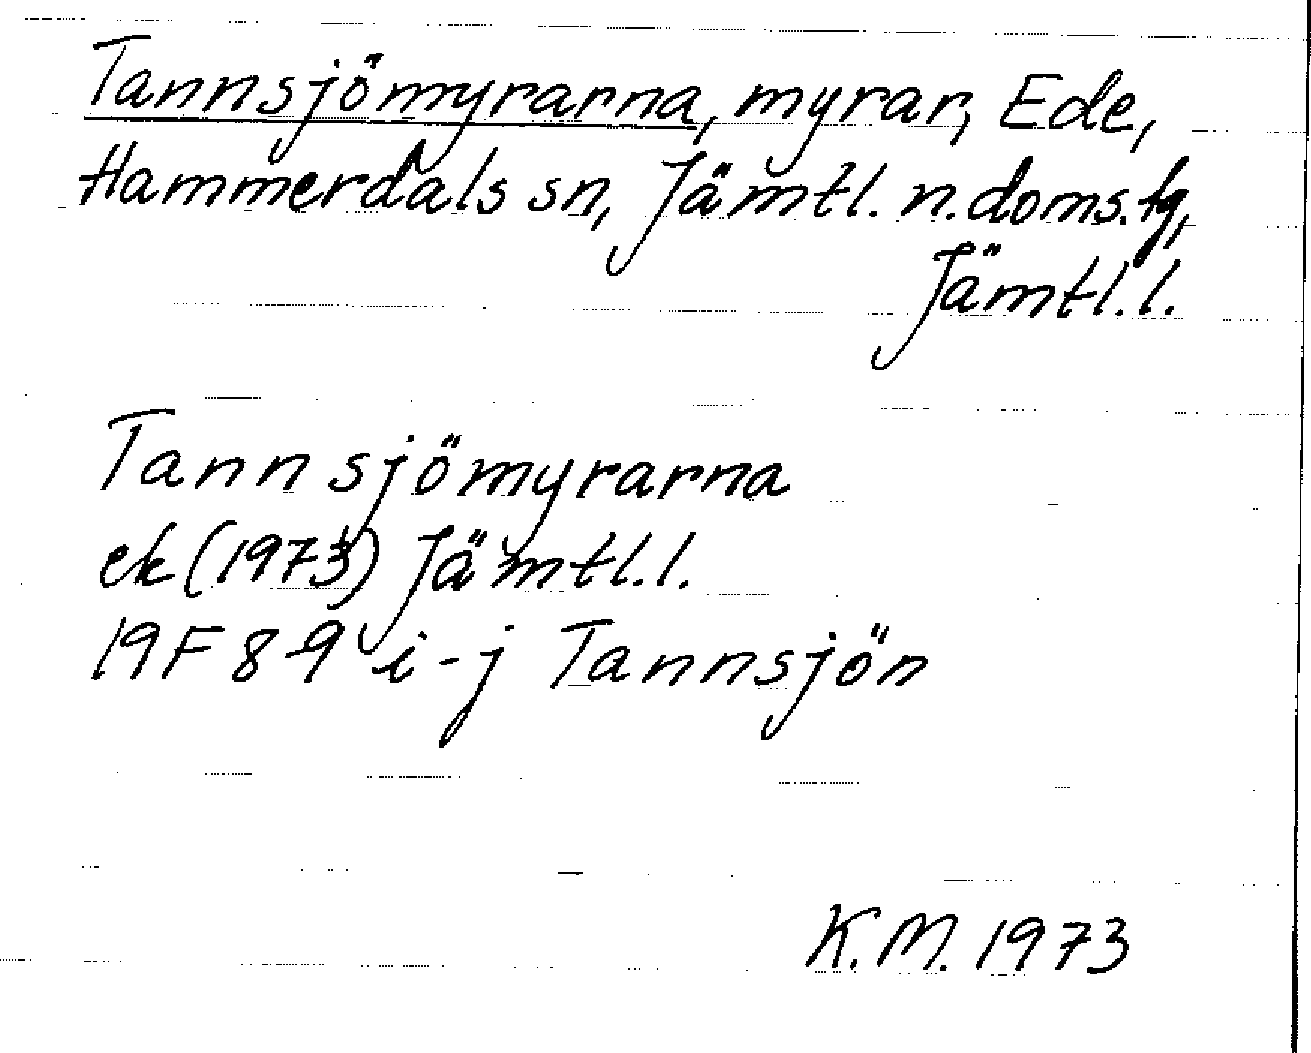 Tannsjömyrarna, myrar, Ede,
Hammerdals sn, Jämtl. n. doms. tg,
Jämtl. l.
Tannsjömyrarna
ek (1973) Jämtl. l.
19F 8-9 i-j Tannsjön
K.M. 1973